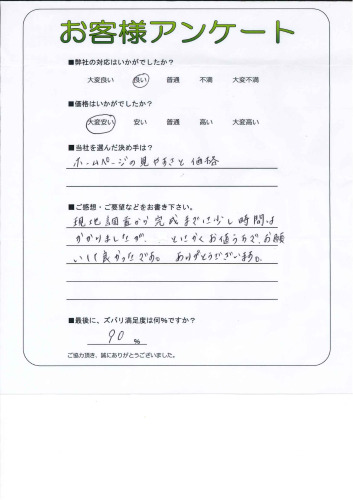 お客様アンケート
■弊社の対応はいかがでしたか?
大変良い 良い 普通 不満 大変不満
■価格はいかがでしたか?
大変安い 安い 普通 高い 大変高い
■当社を選んだ決め手は?
ホームページの見やすさと価格
■ご感想・ご要望などをお書き下さい。
現地調査から完成までに少し時間は
かかりましたが、とにかくお値うちで、お願
いして良かったです。ありがとうございます。
■最後に、ズバリ満足度は何%ですか?
90 %
ご協力頂き、誠にありがとうございました。